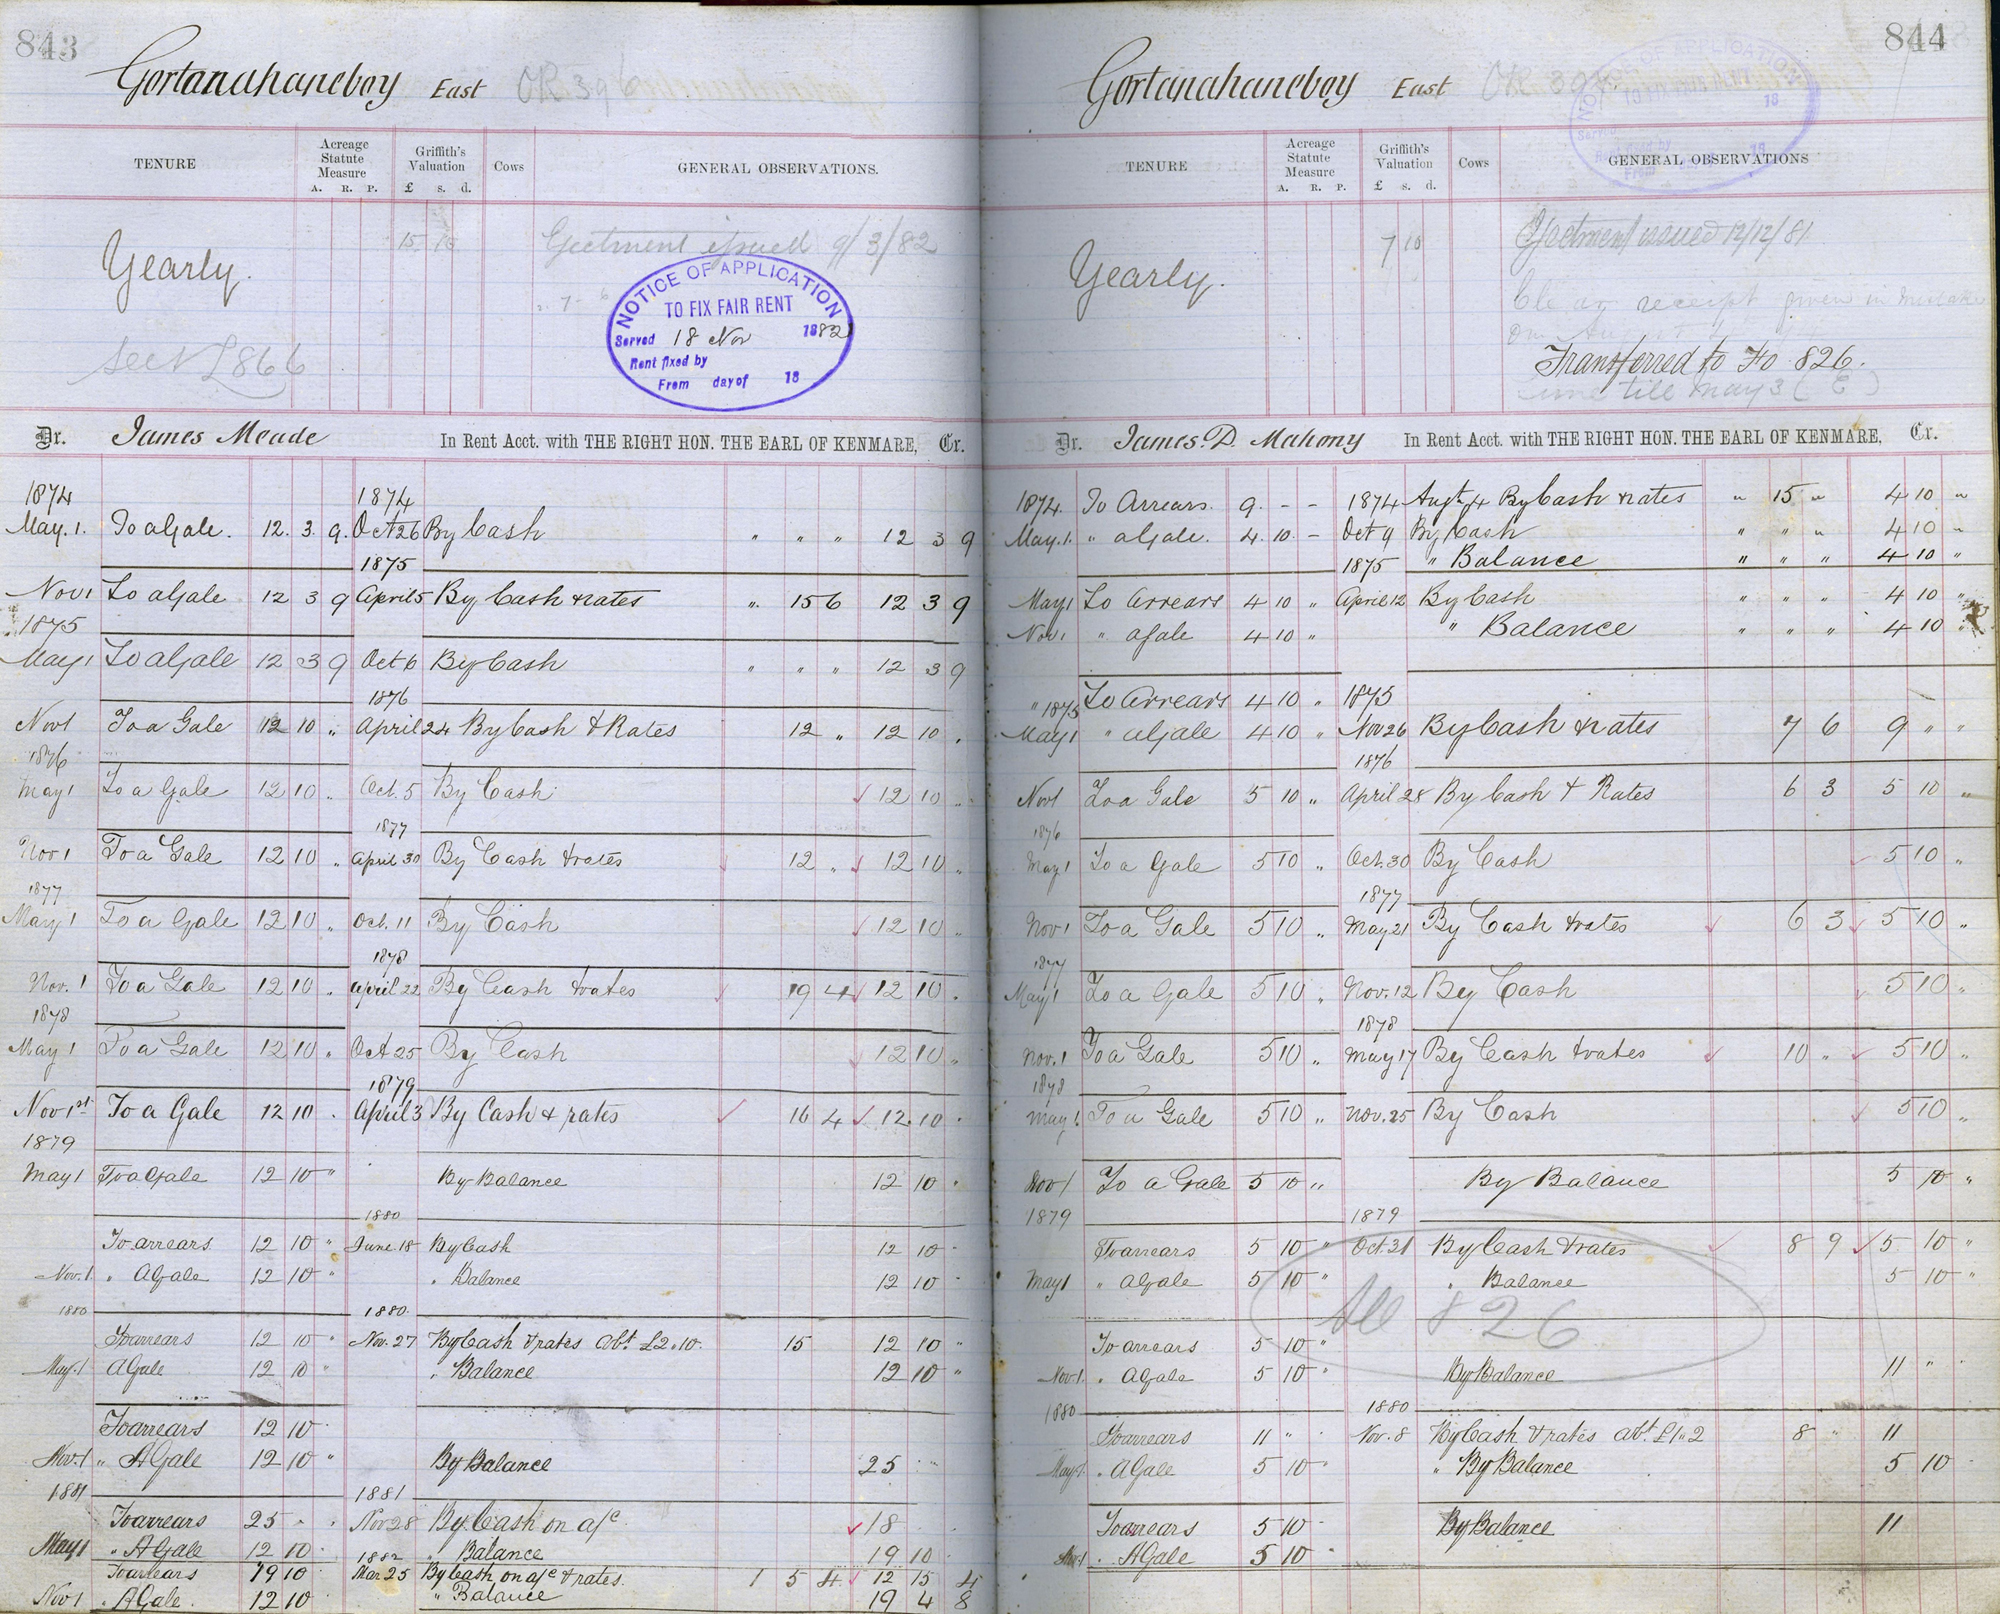 843
Gortanahaneboy East OR 396
TENURE
Acreage Statute Measure A. R. P.
Griffith's Valuation £ s. d.
Cows
GENERAL OBSERVATIONS.
Yearly.
15 10
Ejectment issued 9/3/82
NOTICE OF APPLICATION
TO FIX FAIR RENT
Served 18 Nov 1882
Rent fixed by
From day of 18
Dr. James Meade In Rent Acct. with THE RIGHT HON. THE EARL OF KENMARE, Cr.
1874 1874
May. 1. To a Gale. 12. 3. 9. Oct 26 By Cash " " " 12 3 9
1875
Nov 1 To a Gale 12 3 9 April 5 By Cash & rates ". 15 6 12 3 9
1875
May 1 To a Gale 12 3 9 Oct 6 By Cash " " " 12 3 9
1876
Nov 1 To a Gale 12 10 " April 24 By Cash & Rates 12 " 12 10 .
1876
May 1 To a Gale 12 10 .. Oct. 5 By Cash 12 10 ..
1877
Nov 1 To a Gale 12 10 .. April 30 By Cash & rates 12 .. 12 10 ..
1877
May 1 To a Gale 12 10 .. Oct. 11 By Cash 12 10 ..
1878
Nov. 1 To a Gale 12 10 .. April 22 By Cash & rates 19 4 12 10 .
1878
May 1 To a Gale 12 10 .. Oct 25 By Cash 12 10 ..
1879
Nov 1st To a Gale 12 10 . April 3 By Cash & rates 16 4 12. 10 .
1879
May 1 To a Gale 12 10 " By Balance 12 10 .
1880
To arrears 12 10 " June 18 By Cash 12 10 .
Nov. 1 " A Gale 12 10 " " Balance 12 10 .
1880 1880.
To arrears 12 10 " Nov. 27 By Cash & rates abt. £2.10. 15 12 10 "
May. 1 A Gale 12 10 " " Balance 12 10 "
To arrears 12 10
Nov. 1 " A Gale 12 10 " By Balance 25 . "
1881 1881
To arrears 25 . . Nov 28 By Cash on a/c 18
May 1 " A Gale 12 10 . 1882 " Balance 19 10
To arrears 19 10 Mar 25 By Cash on a/c & rates. 1 5 4 12 15 4
Nov 1 " A Gale. 12 10 " Balance 19 4 8
844
Gortanahaneboy East
TENURE
Acreage Statute Measure A. R. P.
Griffith's Valuation £ s. d.
Cows
GENERAL OBSERVATIONS
NOTICE OF APPLICATION
TO FIX FAIR RENT
Served 18
Rent fixed by
From 18
Yearly.
7 10
Ejectment issued 12/12/81
receipt given in mistake
Transferred to Fo 826.
till May 3
Dr. James. D. Mahony In Rent Acct. with THE RIGHT HON. THE EARL OF KENMARE, Cr.
1874. To Arrears. 9. - - 1874 Augt. 4 By Cash & rates " 15 " 4 10 "
May. 1. " a Gale. 4. 10. - Oct 9 By Cash " " " 4 10 "
1875 " Balance " " " 4 10 "
May 1 To Arrears 4 10 " April 12 By Cash " " " 4 10 "
Nov. 1 " a Gale 4 10 " " Balance " " " 4 10 "
" 1875 To Arrears 4 10 " 1875
May 1 " a Gale 4 10 " Nov 26 By Cash & rates 7 6 9 " "
1876
Nov 1 To a Gale 5 10 " April 28 By Cash & Rates 6 3 5 10 "
1876
May 1 To a Gale 5 10 .. Oct. 30 By Cash 5 10 ..
1877
Nov 1 To a Gale 5 10 .. May 21 By Cash & rates 6 3 5 10 ..
1877
May 1 To a Gale 5 10 .. Nov. 12 By Cash 5 10 ..
1878
Nov. 1 To a Gale 5 10 .. May 17 By Cash & rates 10 .. 5 10 ..
1878
May 1. To a Gale 5 10 .. Nov. 25 By Cash 5 10 ..
Nov 1 To a Gale 5 10 " By Balance 5 10 "
1879 1879
To arrears 5 10 " Oct. 31 By Cash & rates 8 9 5 10 "
May 1 " A Gale 5 10 " " Balance 5 10 "
826
To arrears 5 10 "
Nov. 1. " A Gale 5 10 " By Balance 11 "
1880 1880
To arrears 11 " Nov. 8 By Cash & rates abt. £1.2 8 " 11
May 1. " A Gale 5 10 " " By Balance 5 10
To arrears 5 10 By Balance 11
Nov. 1 " A Gale 5 10 "